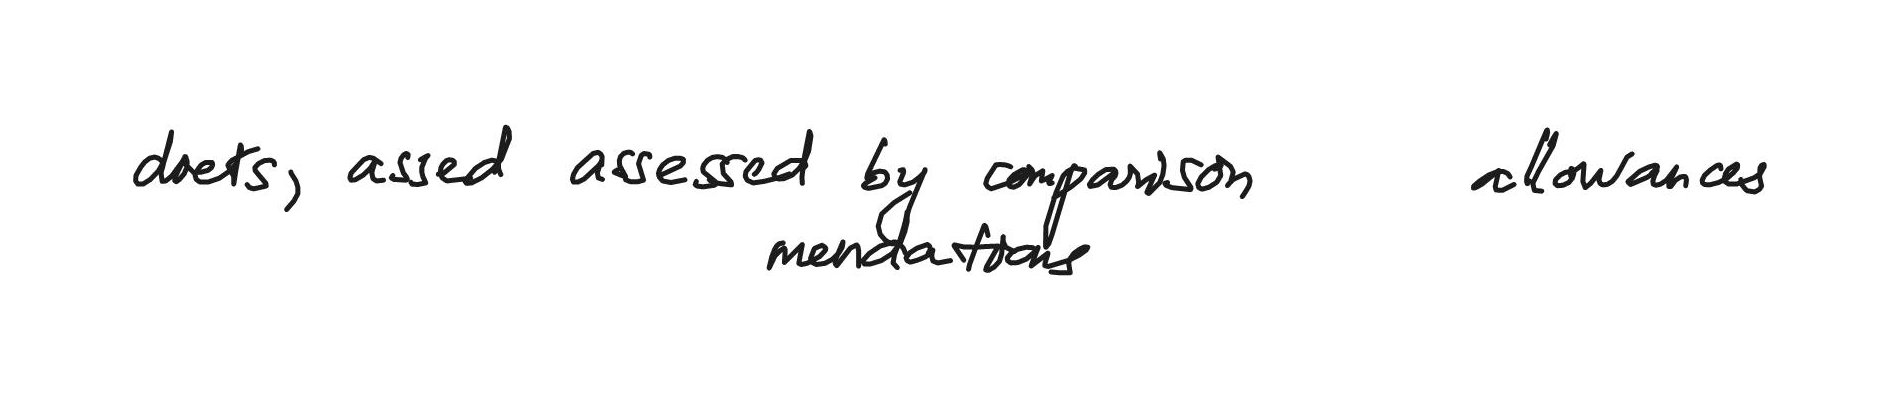 diets, assed assessed by comparison allowances
mendations